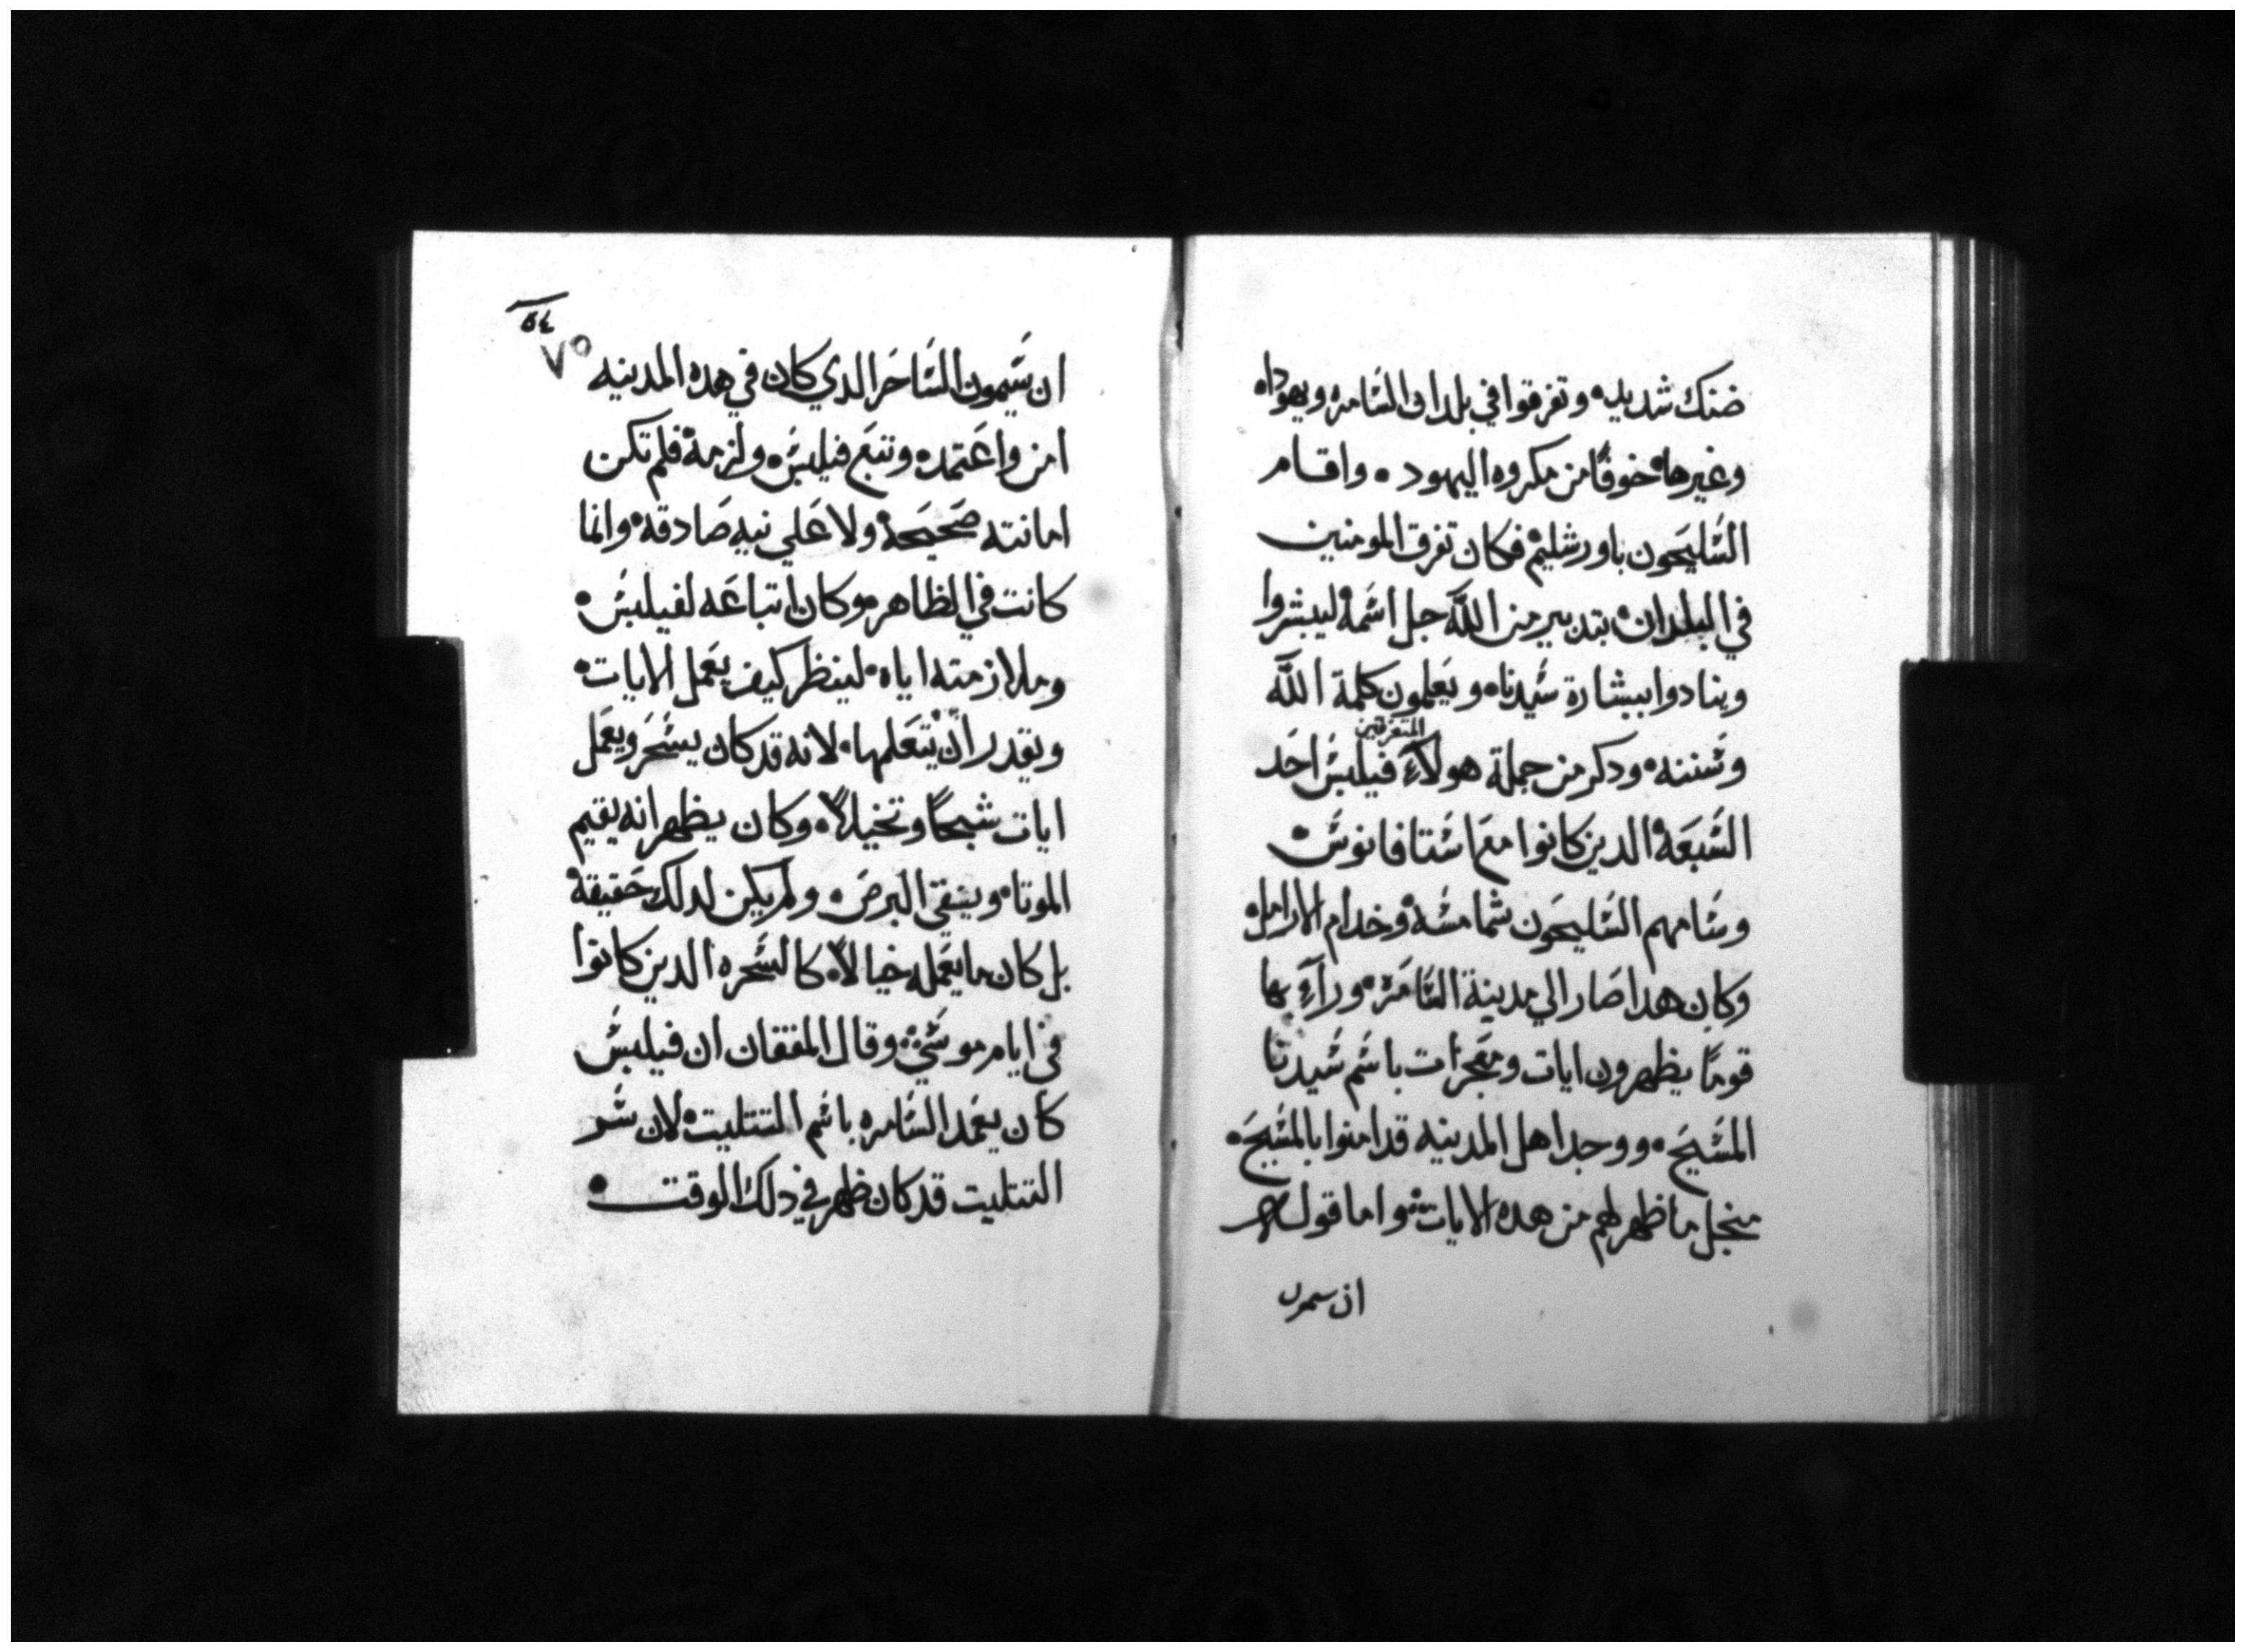 ضنك شديد، وتفرقوا في بلدان السامره ويهودا،
وغيرها، خوفًا من مكروه اليهود، واقام
السليحون باورشليم، فكان تفرق المومنين
في البلدان، بتدبير من اللّه جل اسمه ليبشروا
وينادوا ببشارة سيدنا، ويعلمون كلمة اللّه
المتفرقين
وسننه، ودكر من جملة هولآءِ فيلبس احد
السبعة الدين كانوا مع استافانوس،
وسامهم السليحون شمامسة، وخدام الارامل،
وكان هدا صار الي مدينة السامرة، ورآءِ بها
قومًا يظهرون ايات ومعجزات باسم سيدنا
المسيح، ووجد اهل المدينه قد امنوا بالمسيح،
منجل ما ظهر لهم من هده الايات، واما قوله
ان سيمون
٥٤
٧٥
ان سيمون الساحر الدي كان في هده المدينه
امن واعتمد، وتبع فيلبس، ولزمه، فلم تكن
امانته صحيحة، ولا علي نيه صادقه، وانما
كانت في الظاهر، وكان اتباعه لفيلبس،
وملازمته اياه، لينظر كيف يعمل الايات،
ويقدر ان يتعلمها، لانه قد كان يسحر ويعمل
ايات شبحًا وتخيلاً، وكان يظهر انه يقيم
الموتا، وينقي البرص، ولم يكن لدلك حقيقة،
بل كان ما يعمله خيالاً، كالسحره الدين كانوا
في ايام موسي، وقال المفقان ان فيلبس
كان يعمد السامره باسم التتليت، لان سر
التتليت قد كان ظهر في دلك الوقت،